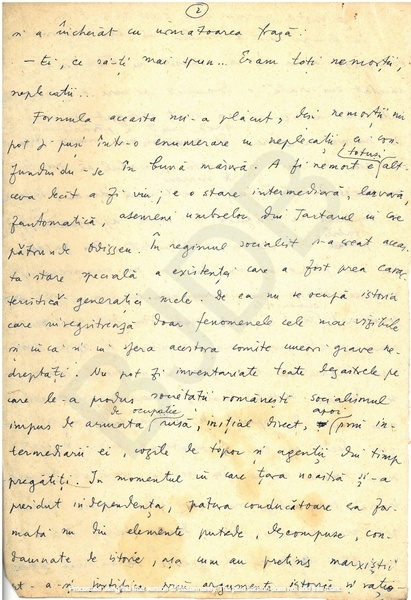 2
și a încheiat cu următoarea frază:
– Ei, ce să-ți mai spun... Eram toți nemorții,
neplecații...
Formula aceasta mi-a plăcut, deși nemorții nu
pot fi puși într-o enumerare cu neplecații
în bună măsură. A fi nemort e totuși alt-
ceva decît a fi viu; e o stare intermediară, larvară,
fantomatică, asemeni umbrelor din Tartarul în care
pătrunde Odisseu. În regimul socialist s-a creat aceas-
tă stare specială a existenței care a fost prea carac-
teristică generației mele. De ea nu se ocupă istoria
care înregistrează doar fenomenele cele mai vizibile
și încă și în sfera acestora comite uneori grave ne-
dreptăți. Nu pot fi inventariate toate dezastrele pe
care le-a produs societății românești socialismul
impus de armata de ocupație rusă, inițial direct, apoi prin in-
termediarii ei, cozile de topor și agenții din timp
pregătiți. În momentul în care țara noastră și-a
pierdut independența, pătura conducătoare era for-
mată nu din elemente putrede, descompuse, con-
damnate de istorie, așa cum au pretins marxiștii
argumente istorice și